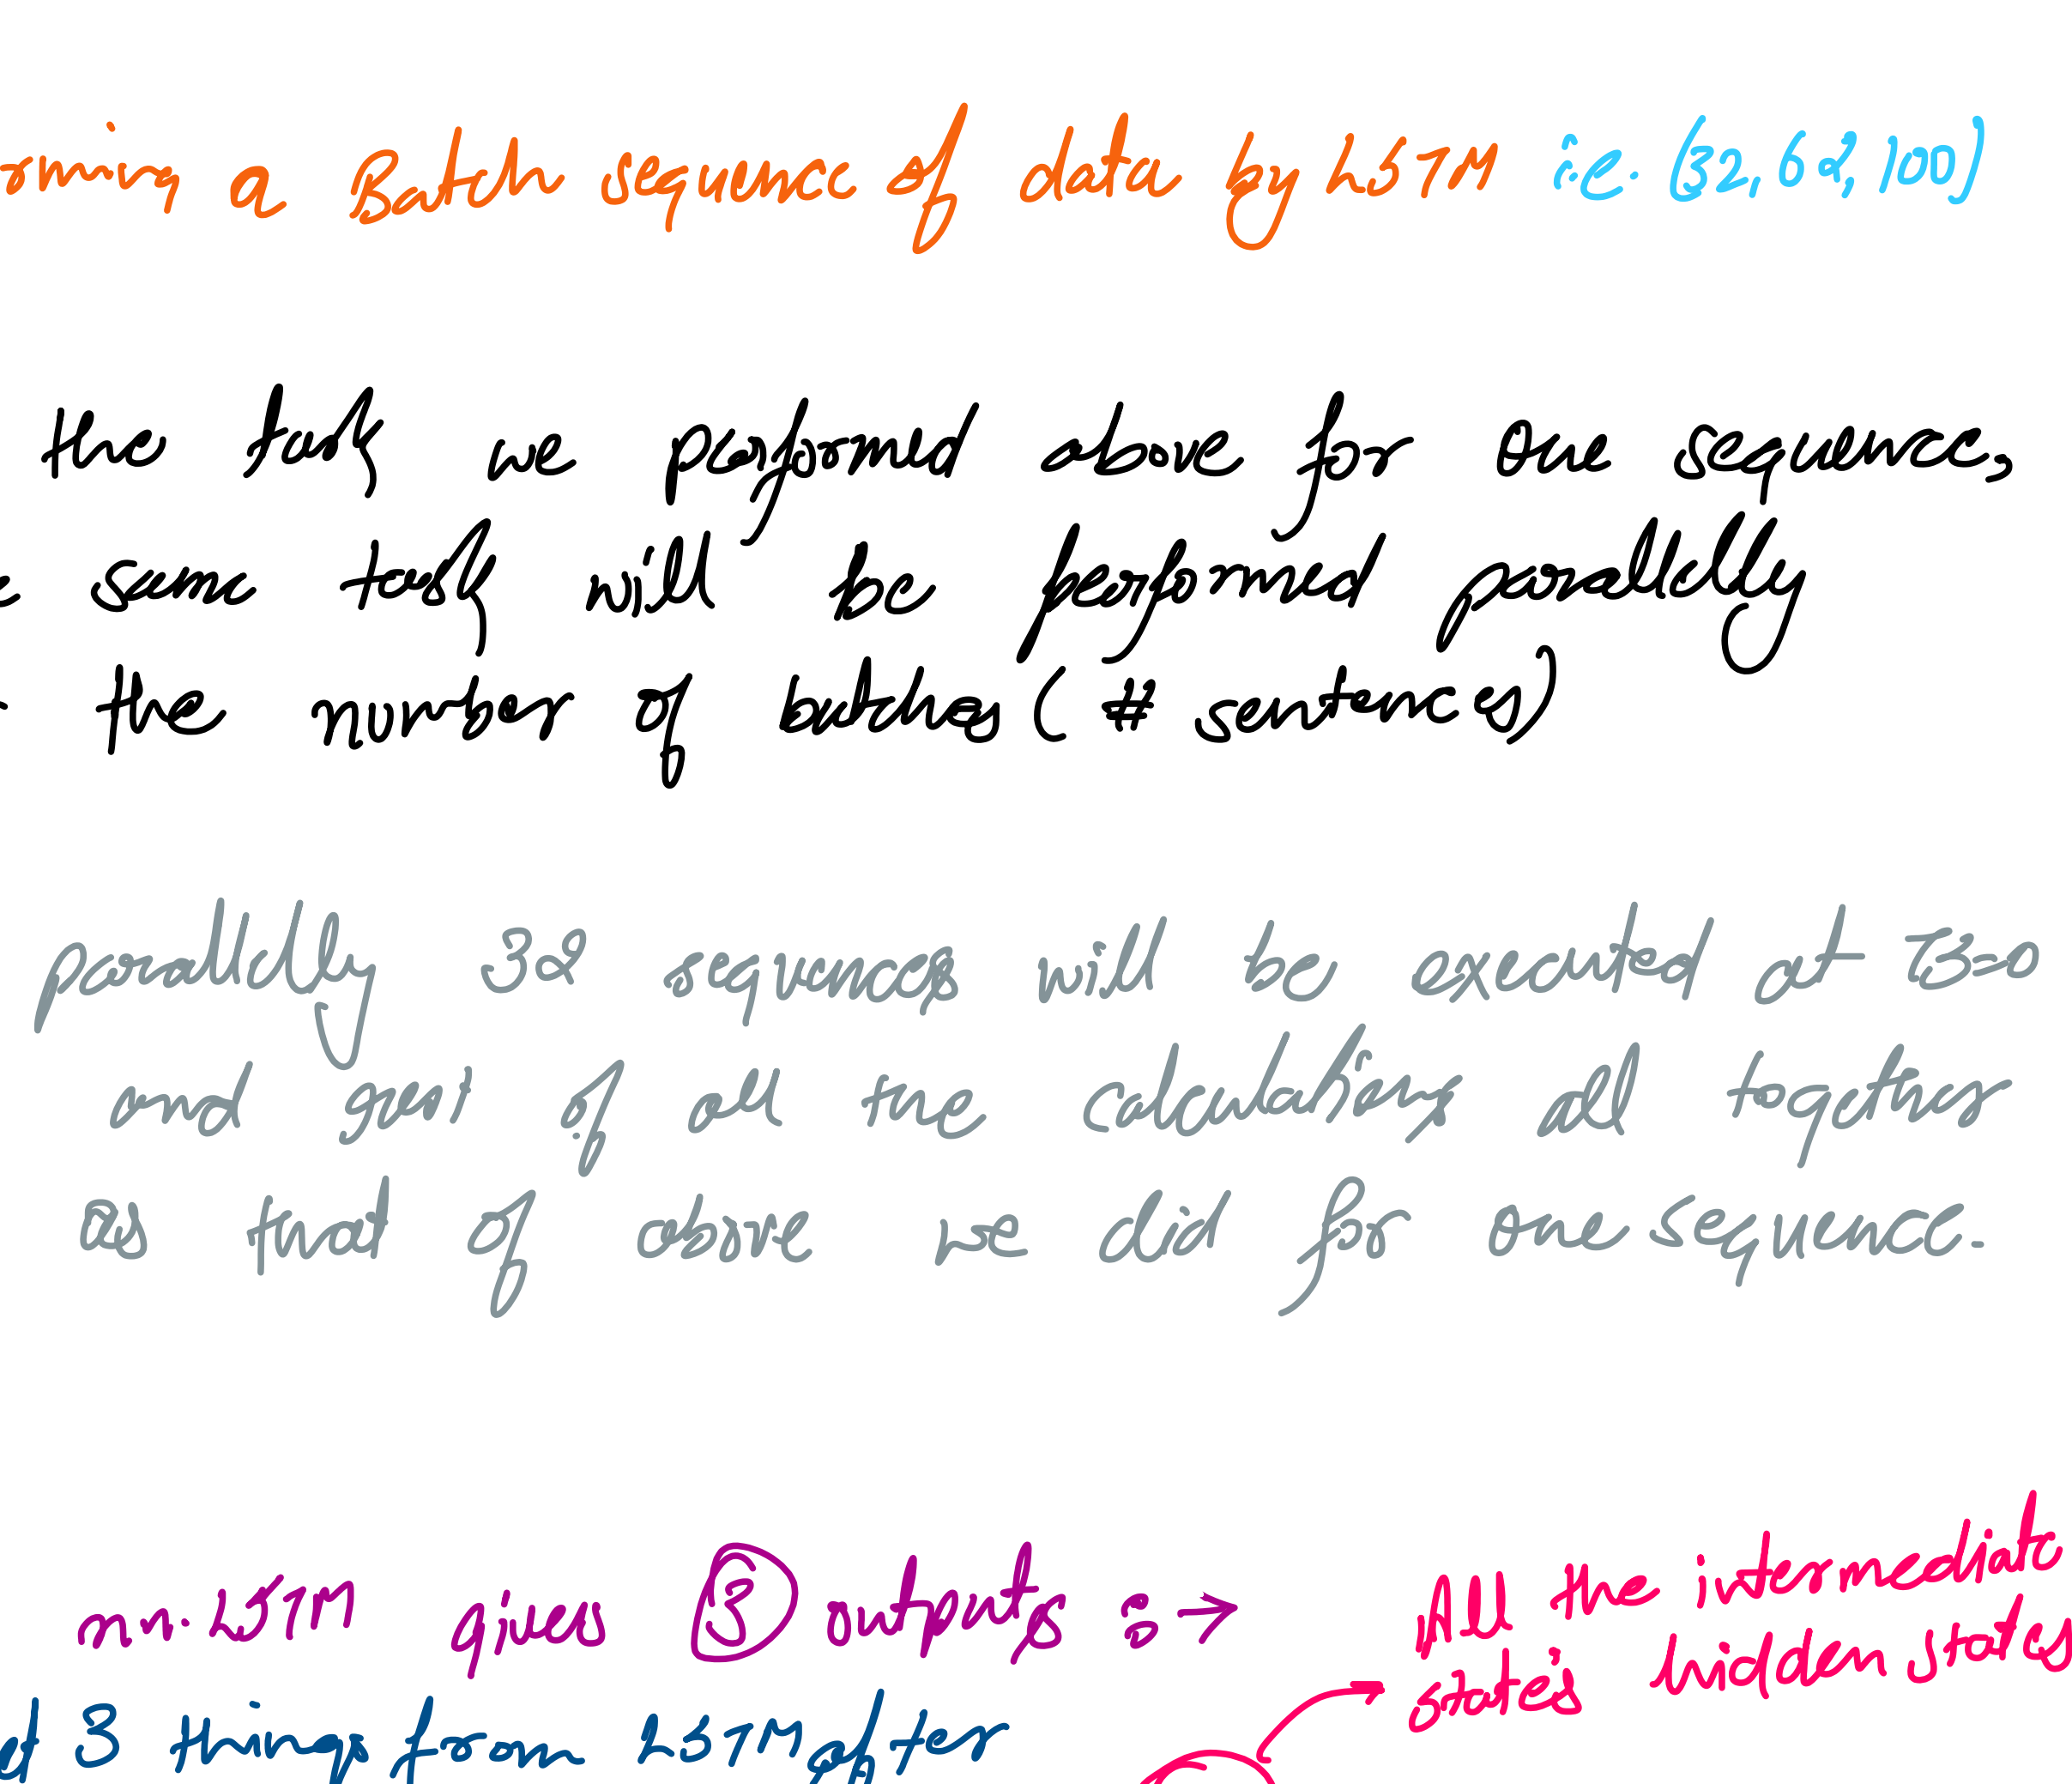 a Batch sequence of data by LSTM i.e. (32, 64, 100)
the task we perform above for one sequence,
same task will be performed parallelly
the number of batches (# sentences)
parallelly 32 sequences will be executed at
and of all the calculations at together
as that of above we did for one sequence.
gives 3 outputs :→ All the intermediate
states hidden states
3 things from LSTM after